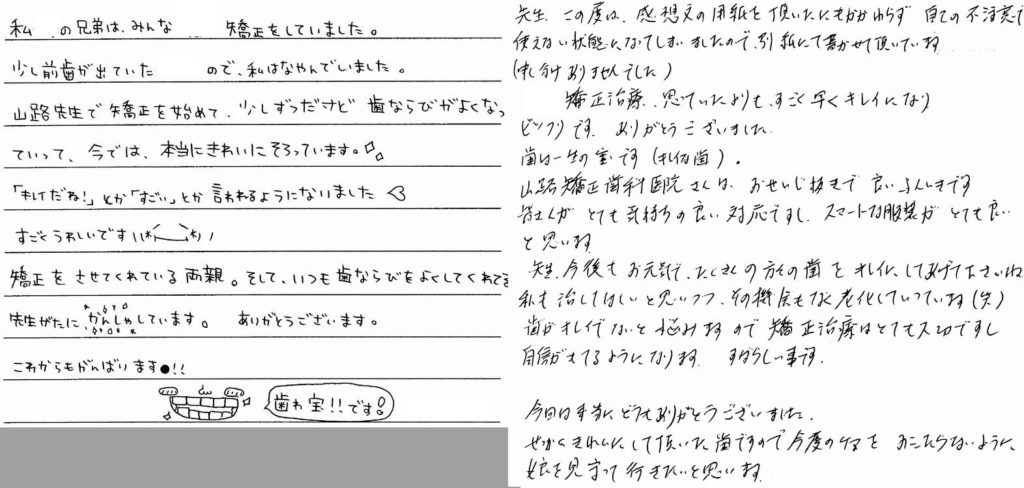 私 の兄弟は、みんな 矯正をしていました。
少し前歯が出ていた ので、私はなやんでいました。
山路先生で矯正を始めて、少しずつだけど 歯ならびがよくなっ
ていって、今では、本当にきれいにそろっています。
「キレイだね!」とか「すごい」とか 言われるようにないました ♡
すごくうれしいです
矯正をさせてくれている両親。そして、いつも歯ならびをよくしてくれてる
先生がたに かんしゃしています。 ありがとうございます。
これからもがんばります!!
歯わ宝!!です!
先生、この度は、感想文の用紙を頂いたにもかかわらず 自宅の不注意で
使えない状態になってしまいましたので、別紙にて書かせて頂いています
(申し分けありませんでした)
矯正治療、思っていたよりも、すごく早くキレイになり
ビックリです。ありがとうございました。
歯は一生の宝です(キレイな歯)。
山路矯正歯科医院さんは、おせいじ抜きで 良いふんいきです
皆さんが とても気持ちの良い対応ですし、スマートな服装が とても良い
と思います
先生、今後も お元気で、たくさんの方々の歯を キレイにしてあげて下さいね
私も 治してほしいと思いつつ、その機会もなく老化していっています(笑)
歯がキレイでないと 悩みますので 矯正治療はとても大切ですし
自信がもてるようになります。 すばらしい事です。
今回は本当に どうもありがとうございました。
せっかくきれいにして頂いた歯ですので今度のケアを おこたらないように
娘を見守って行きたいと思います。